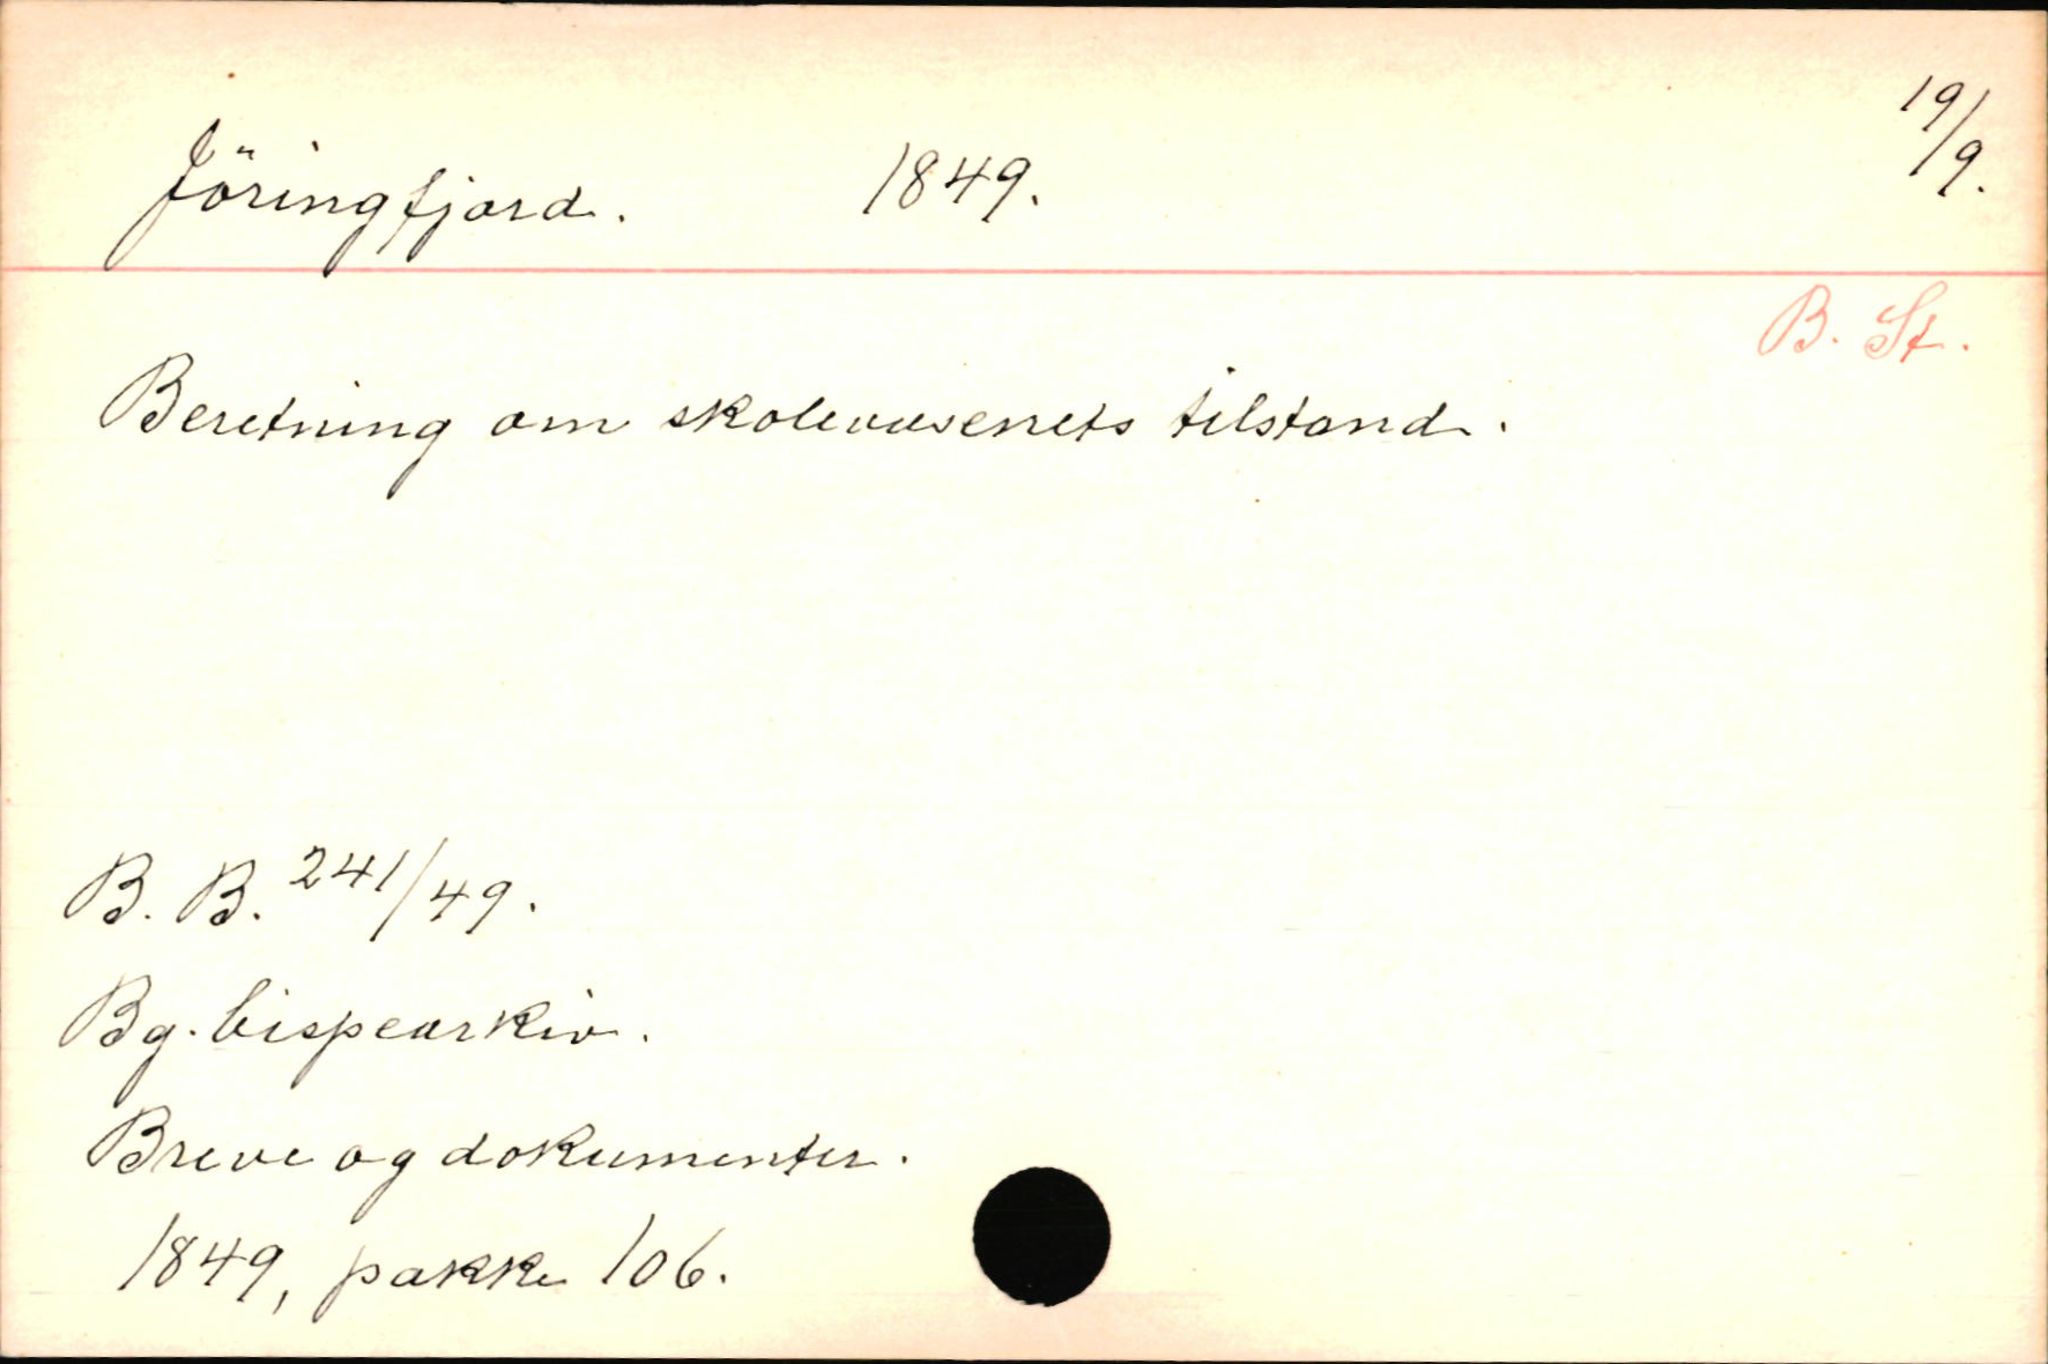 Jöringfjord. 1849. 19/9.
B. St.
Beretning om skolevæsenets tilstand.
B. B. 241/49.
Bg. bispearkiv.
Breve og dokumenter.
1849, pakke 106.